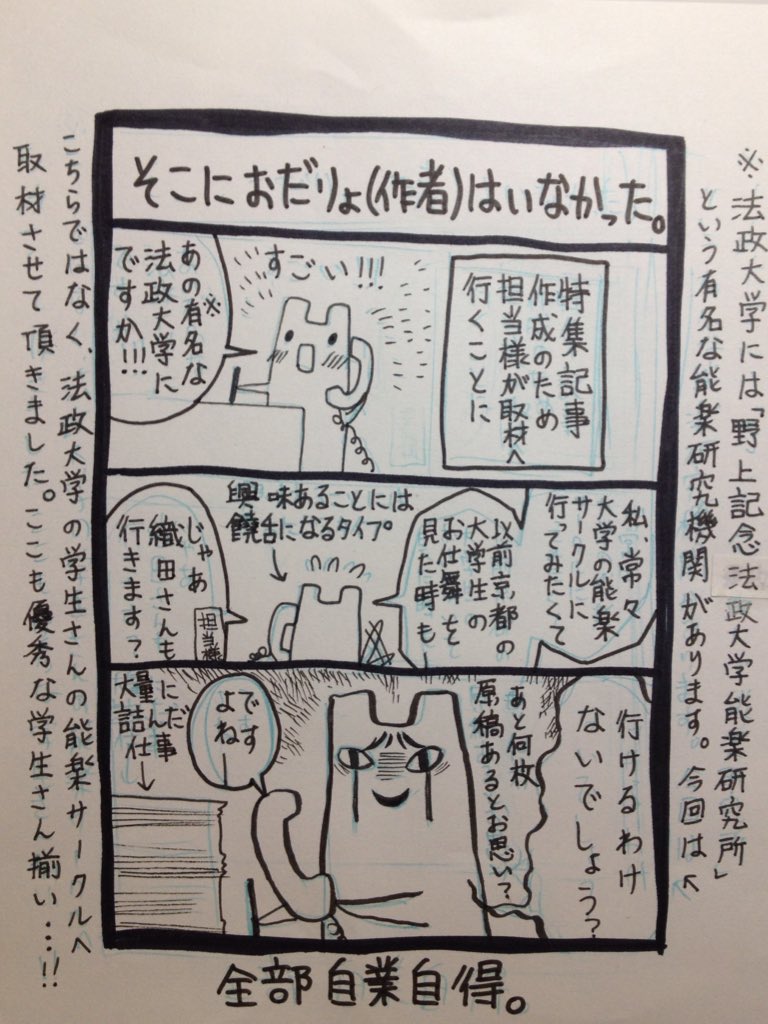 そこにおだりょ(作者)はいなかった。
特集記事
作成のため
担当様が取材へ
行くことに
すごい!!!
あの有名な※
法政大学に
ですか!!!
私、常々
大学の能楽
サークルに
行ってみたくて
以前京都の
大学生の
お仕舞を
見た時も─
興味あることには
饒舌になるタイプ
じゃあ
織田さんも
行きます?
担当様
行けるわけ
ないでしょう?
あと何枚
原稿あるとお思い?
ですよね─
大量に
詰んだ
仕事
全部自業自得。
※法政大学には「野上記念法政大学能楽研究所」
という有名な能楽研究機関があります。今回は
こちらではなく、法政大学の学生さんの能楽サークルへ
取材させて頂きました。ここも優秀な学生さん揃い…!!